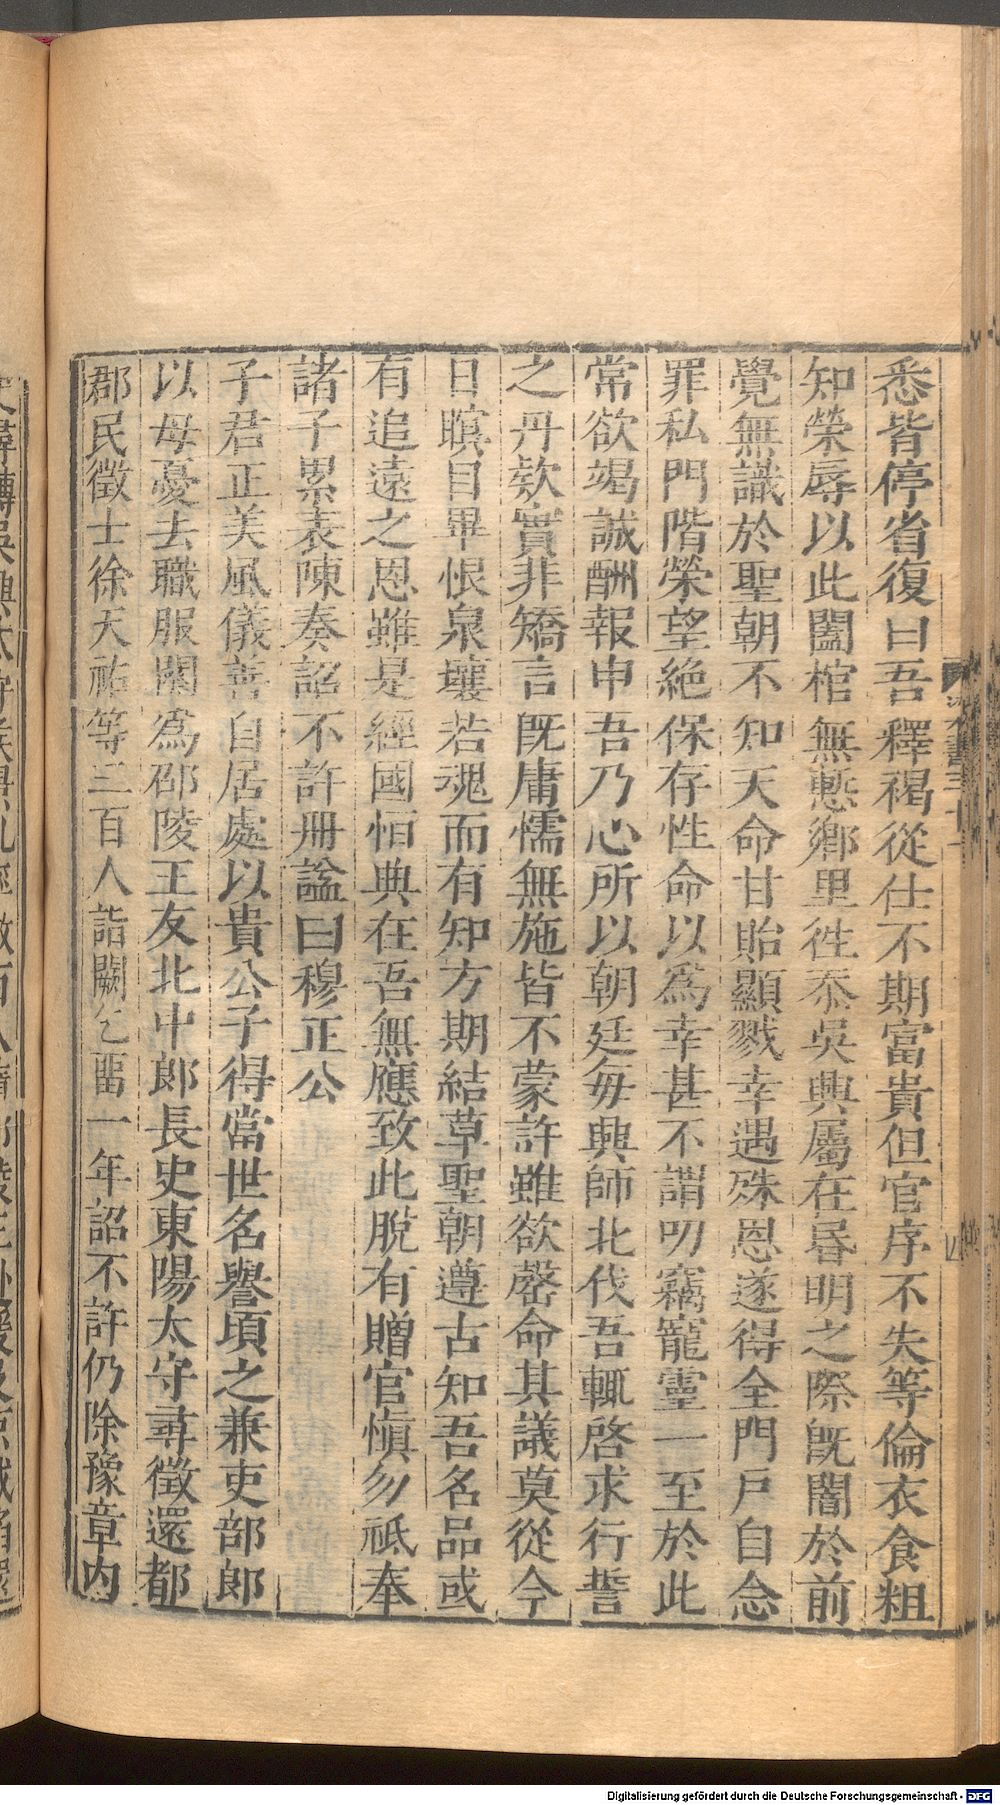 悉皆停省復曰吾釋褐從仕不期富貴但官序不失等倫衣食粗
知榮辱以此闔棺無慙鄉里徃忝吳興屬在昏明之際旣闇於前
覺無識於聖朝不知天命甘貽顯戮幸遇殊恩遂得全門戸自念
罪私門階榮望絶保存性命以爲幸甚不謂叨竊寵靈一至於此
常欲竭誠酬報申吾乃心所以朝廷每興師北伐吾輒啓求行誓
之丹欵實非矯言既庸懦無施皆不蒙許雖欲罄命其議莫從今
日瞑目畢恨泉壤若魂而有知方期結草聖朝遵古知吾名品或
有追遠之恩雖是經國恒典在吾無應致此脫有贈官愼勿祗奉
諸子累表陳奏詔不許册諡曰穆正公
子君正美風儀善自居處以貴公子得當世名譽頃之兼吏部郎
以母憂去職服闋爲邵陵王友北中郎長史東陽太守尋徵還都
郡民徵士徐天祐等三百人詣闕乞畱一年詔不許仍除豫章内
Digitalisierung gefördert durch die Deutsche Forschungsgemeinschaft - DFG